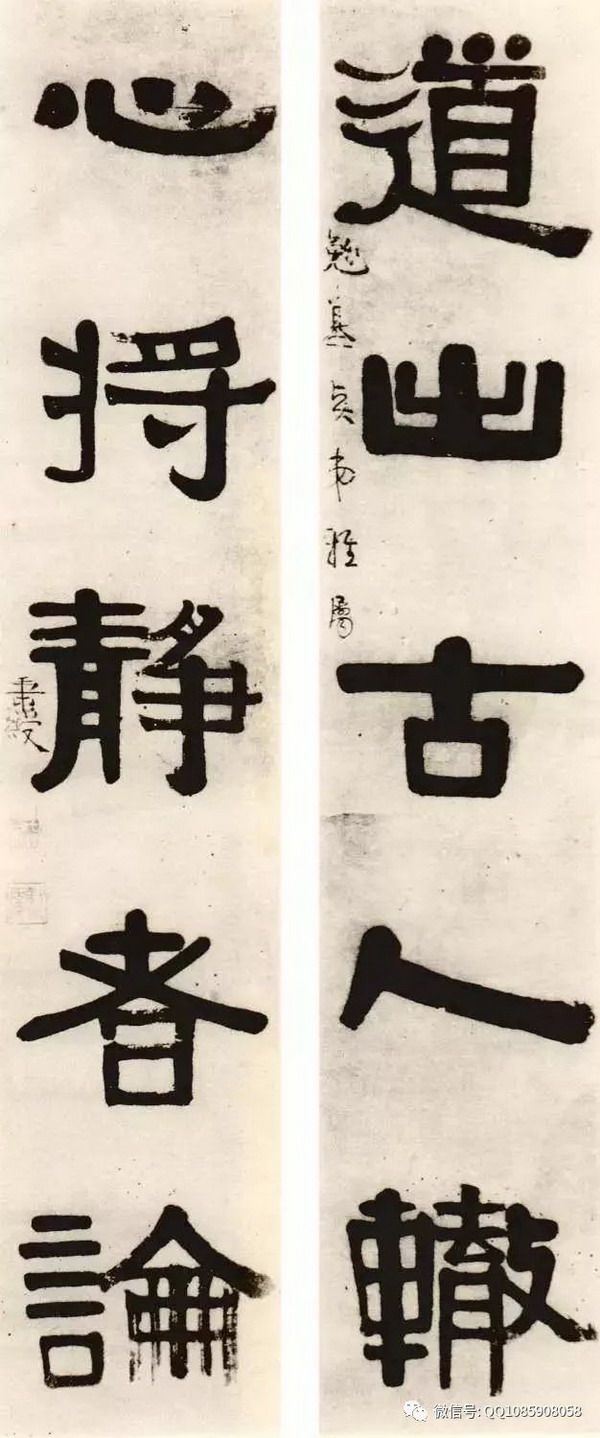 道出古人轍
心將靜者論
秉綬
微信号: QQ1085908058